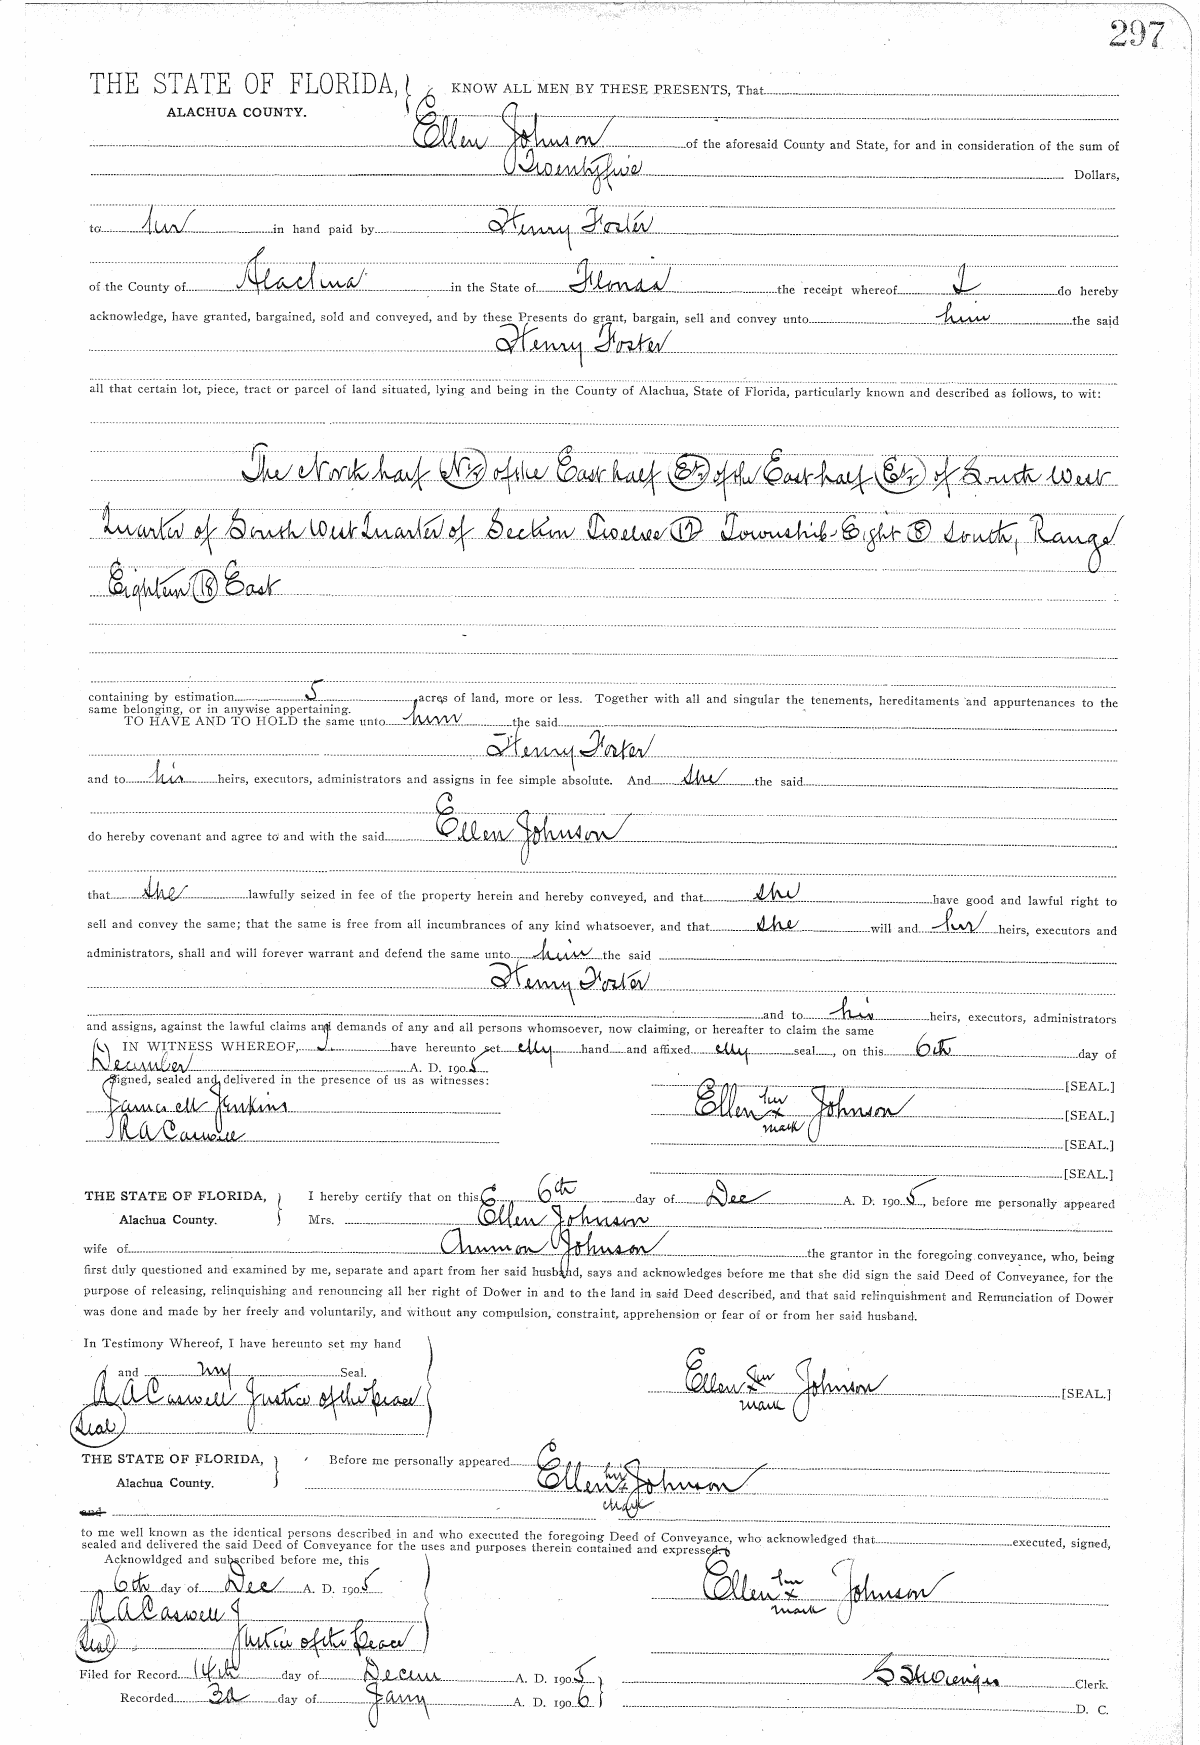 297
THE STATE OF FLORIDA, KNOW ALL MEN BY THESE PRESENTS, That
ALACHUA COUNTY.
Ellen Johnson of the aforesaid County and State, for and in consideration of the sum of
Twentyfive Dollars,
to her in hand paid by Henry Foster
of the County of Alachua in the State of Florida the receipt whereof I do hereby
acknowledge, have granted, bargained, sold and conveyed, and by these Presents do grant, bargain, sell and convey unto him the said
Henry Foster
all that certain lot, piece, tract or parcel of land situated, lying and being in the County of Alachua, State of Florida, particularly known and described as follows, to wit:
The North half (N½) of the East half (E½) of the East half (E½) of South West
Quarter of South West Quarter of Section Twelve (12) Township Eight (8) South, Range
Eighteen (18) East
containing by estimation 5 acres of land, more or less. Together with all and singular the tenements, hereditaments and appurtenances to the
same belonging, or in anywise appertaining.
TO HAVE AND TO HOLD the same unto him the said
Henry Foster
and to his heirs, executors, administrators and assigns in fee simple absolute. And she the said
do hereby covenant and agree to and with the said Ellen Johnson
that she lawfully seized in fee of the property herein and hereby conveyed, and that she have good and lawful right to
sell and convey the same; that the same is free from all incumbrances of any kind whatsoever, and that she will and her heirs, executors and
administrators, shall and will forever warrant and defend the same unto him the said
Henry Foster
and to his heirs, executors, administrators
and assigns, against the lawful claims and demands of any and all persons whomsoever, now claiming, or hereafter to claim the same
IN WITNESS WHEREOF, I have hereunto set my hand and affixed my seal, on this 6th day of
December A. D. 1905
Signed, sealed and delivered in the presence of us as witnesses: [SEAL.]
James M Jenkins Ellen her x mark Johnson [SEAL.]
R A Caswell [SEAL.]
[SEAL.]
THE STATE OF FLORIDA, I hereby certify that on this 6th day of Dec A. D. 1905, before me personally appeared
Alachua County. Mrs. Ellen Johnson
wife of Ammon Johnson the grantor in the foregoing conveyance, who, being
first duly questioned and examined by me, separate and apart from her said husband, says and acknowledges before me that she did sign the said Deed of Conveyance, for the
purpose of releasing, relinquishing and renouncing all her right of Dower in and to the land in said Deed described, and that said relinquishment and Renunciation of Dower
was done and made by her freely and voluntarily, and without any compulsion, constraint, apprehension or fear of or from her said husband.
In Testimony Whereof, I have hereunto set my hand
and my Seal.
R A Caswell Justice of the Peace Ellen her x mark Johnson [SEAL.]
(Seal)
THE STATE OF FLORIDA, Before me personally appeared
Alachua County. Ellen her x mark Johnson
and
to me well known as the identical persons described in and who executed the foregoing Deed of Conveyance, who acknowledged that executed, signed,
sealed and delivered the said Deed of Conveyance for the uses and purposes therein contained and expressed.
Acknowldged and subscribed before me, this
6th day of Dec A. D. 1905 Ellen her x mark Johnson
R A Caswell J
(Seal) Justice of the Peace
Filed for Record 14th day of Decem A. D. 1905 Clerk.
Recorded 3d day of Jany A. D. 1906 D. C.